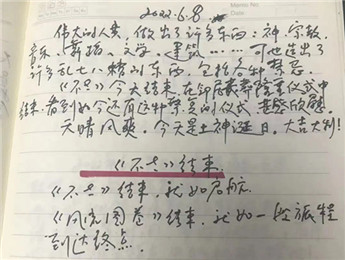 2022.6.8
伟大的人类，做出了许多东西：神、宗教、
音乐、舞蹈、文学、建筑……可也造出了
许多乱七八糟的东西，包括各种禁忌。
《不》今天结束，在
结束，看到如今还有这种的仪式，甚感欣慰。
天晴风爽，今天是土神诞日，大吉大利！
《不》结束
《不》结束，就如启航。
《风流图卷》结束，就如一段旅程
到达终点。